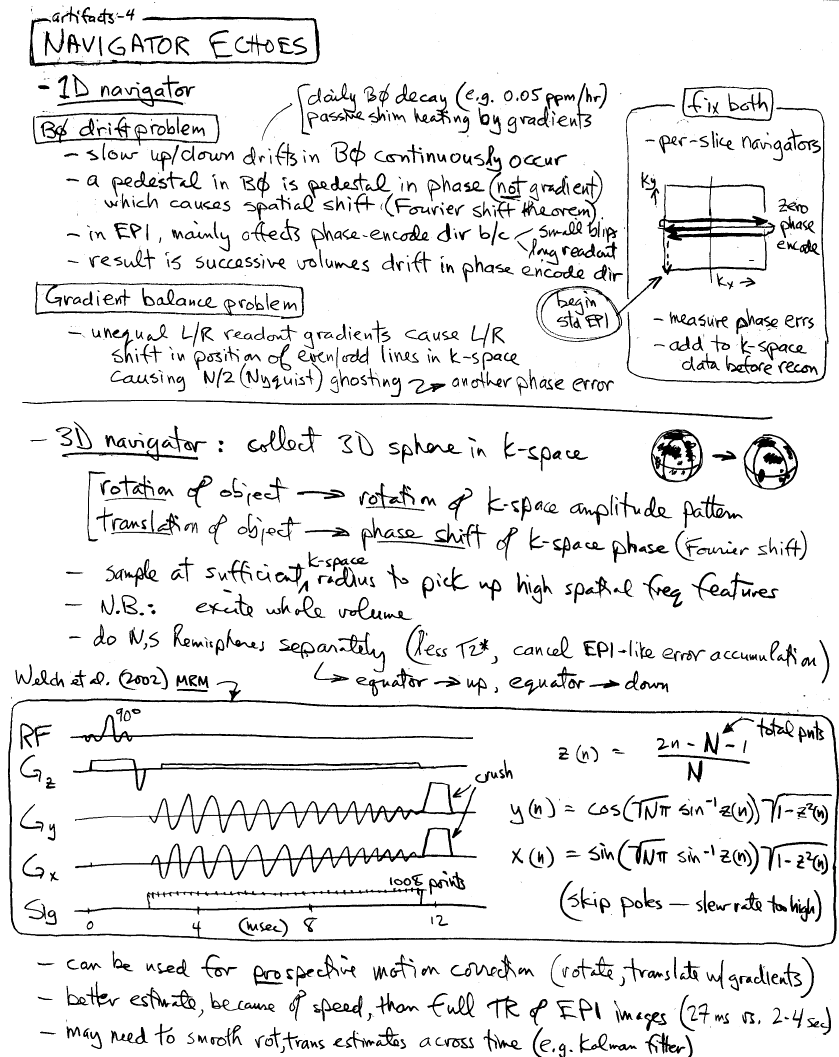 artifacts-4
NAVIGATOR ECHOES
- 1D navigator
[daily BØ decay (e.g. 0.05 ppm/hr)
passive shim heating by gradients
BØ drift problem
- slow up/down drifts in BØ continuously occur
- a pedestal in BØ is pedestal in phase (not gradient)
which causes spatial shift (Fourier shift theorem)
- in EPI, mainly affects phase-encode dir b/c
small blips
long readout
- result is successive volumes drift in phase encode dir
Gradient balance problem
- unequal L/R readout gradients cause L/R
shift in position of even/odd lines in k-space
causing N/2 (Nyquist) ghosting → another phase error
fix both
- per-slice navigators
Ky
zero
phase
encode
Kx →
begin
std EPI
- measure phase errs
- add to k-space
data before recon
- 3D navigator : collect 3D sphere in k-space
rotation of object → rotation of k-space amplitude pattern
translation of object → phase shift of k-space phase (Fourier shift)
- sample at sufficient k-space radius to pick up high spatial freq features
- N.B.: excite whole volume
- do N,S hemispheres separately (less T2*, cancel EPI-like error accumulation)
↳ equator → up, equator → down
Welch et al. (2002) MRM
RF
90°
Gz
crush
Gy
Gx
1008 points
Sig
0 4 (msec) 8 12
total pnts
z(n) = (2n - N - 1)/N
y(n) = cos(√Nπ sin⁻¹ z(n)) √1-z²(n)
x(n) = sin(√Nπ sin⁻¹ z(n)) √1-z²(n)
(skip poles — slew rate too high)
- can be used for prospective motion correction (rotate, translate w/gradients)
- better estimate, because of speed, than full TR of EPI images (27 ms vs. 2-4 sec)
- may need to smooth rot, trans estimates across time (e.g. Kalman filter)